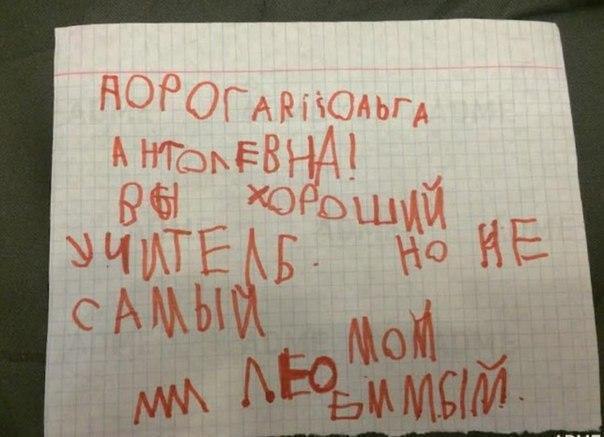 ДОРОГАЯ ОЛЬГА
АНТОЛЕВНА!
ВЫ ХОРОШИЙ
УЧИТЕЛЬ. НО НЕ
САМЫЙ
МОЙ
ЛЕО
БИМЫЙ.